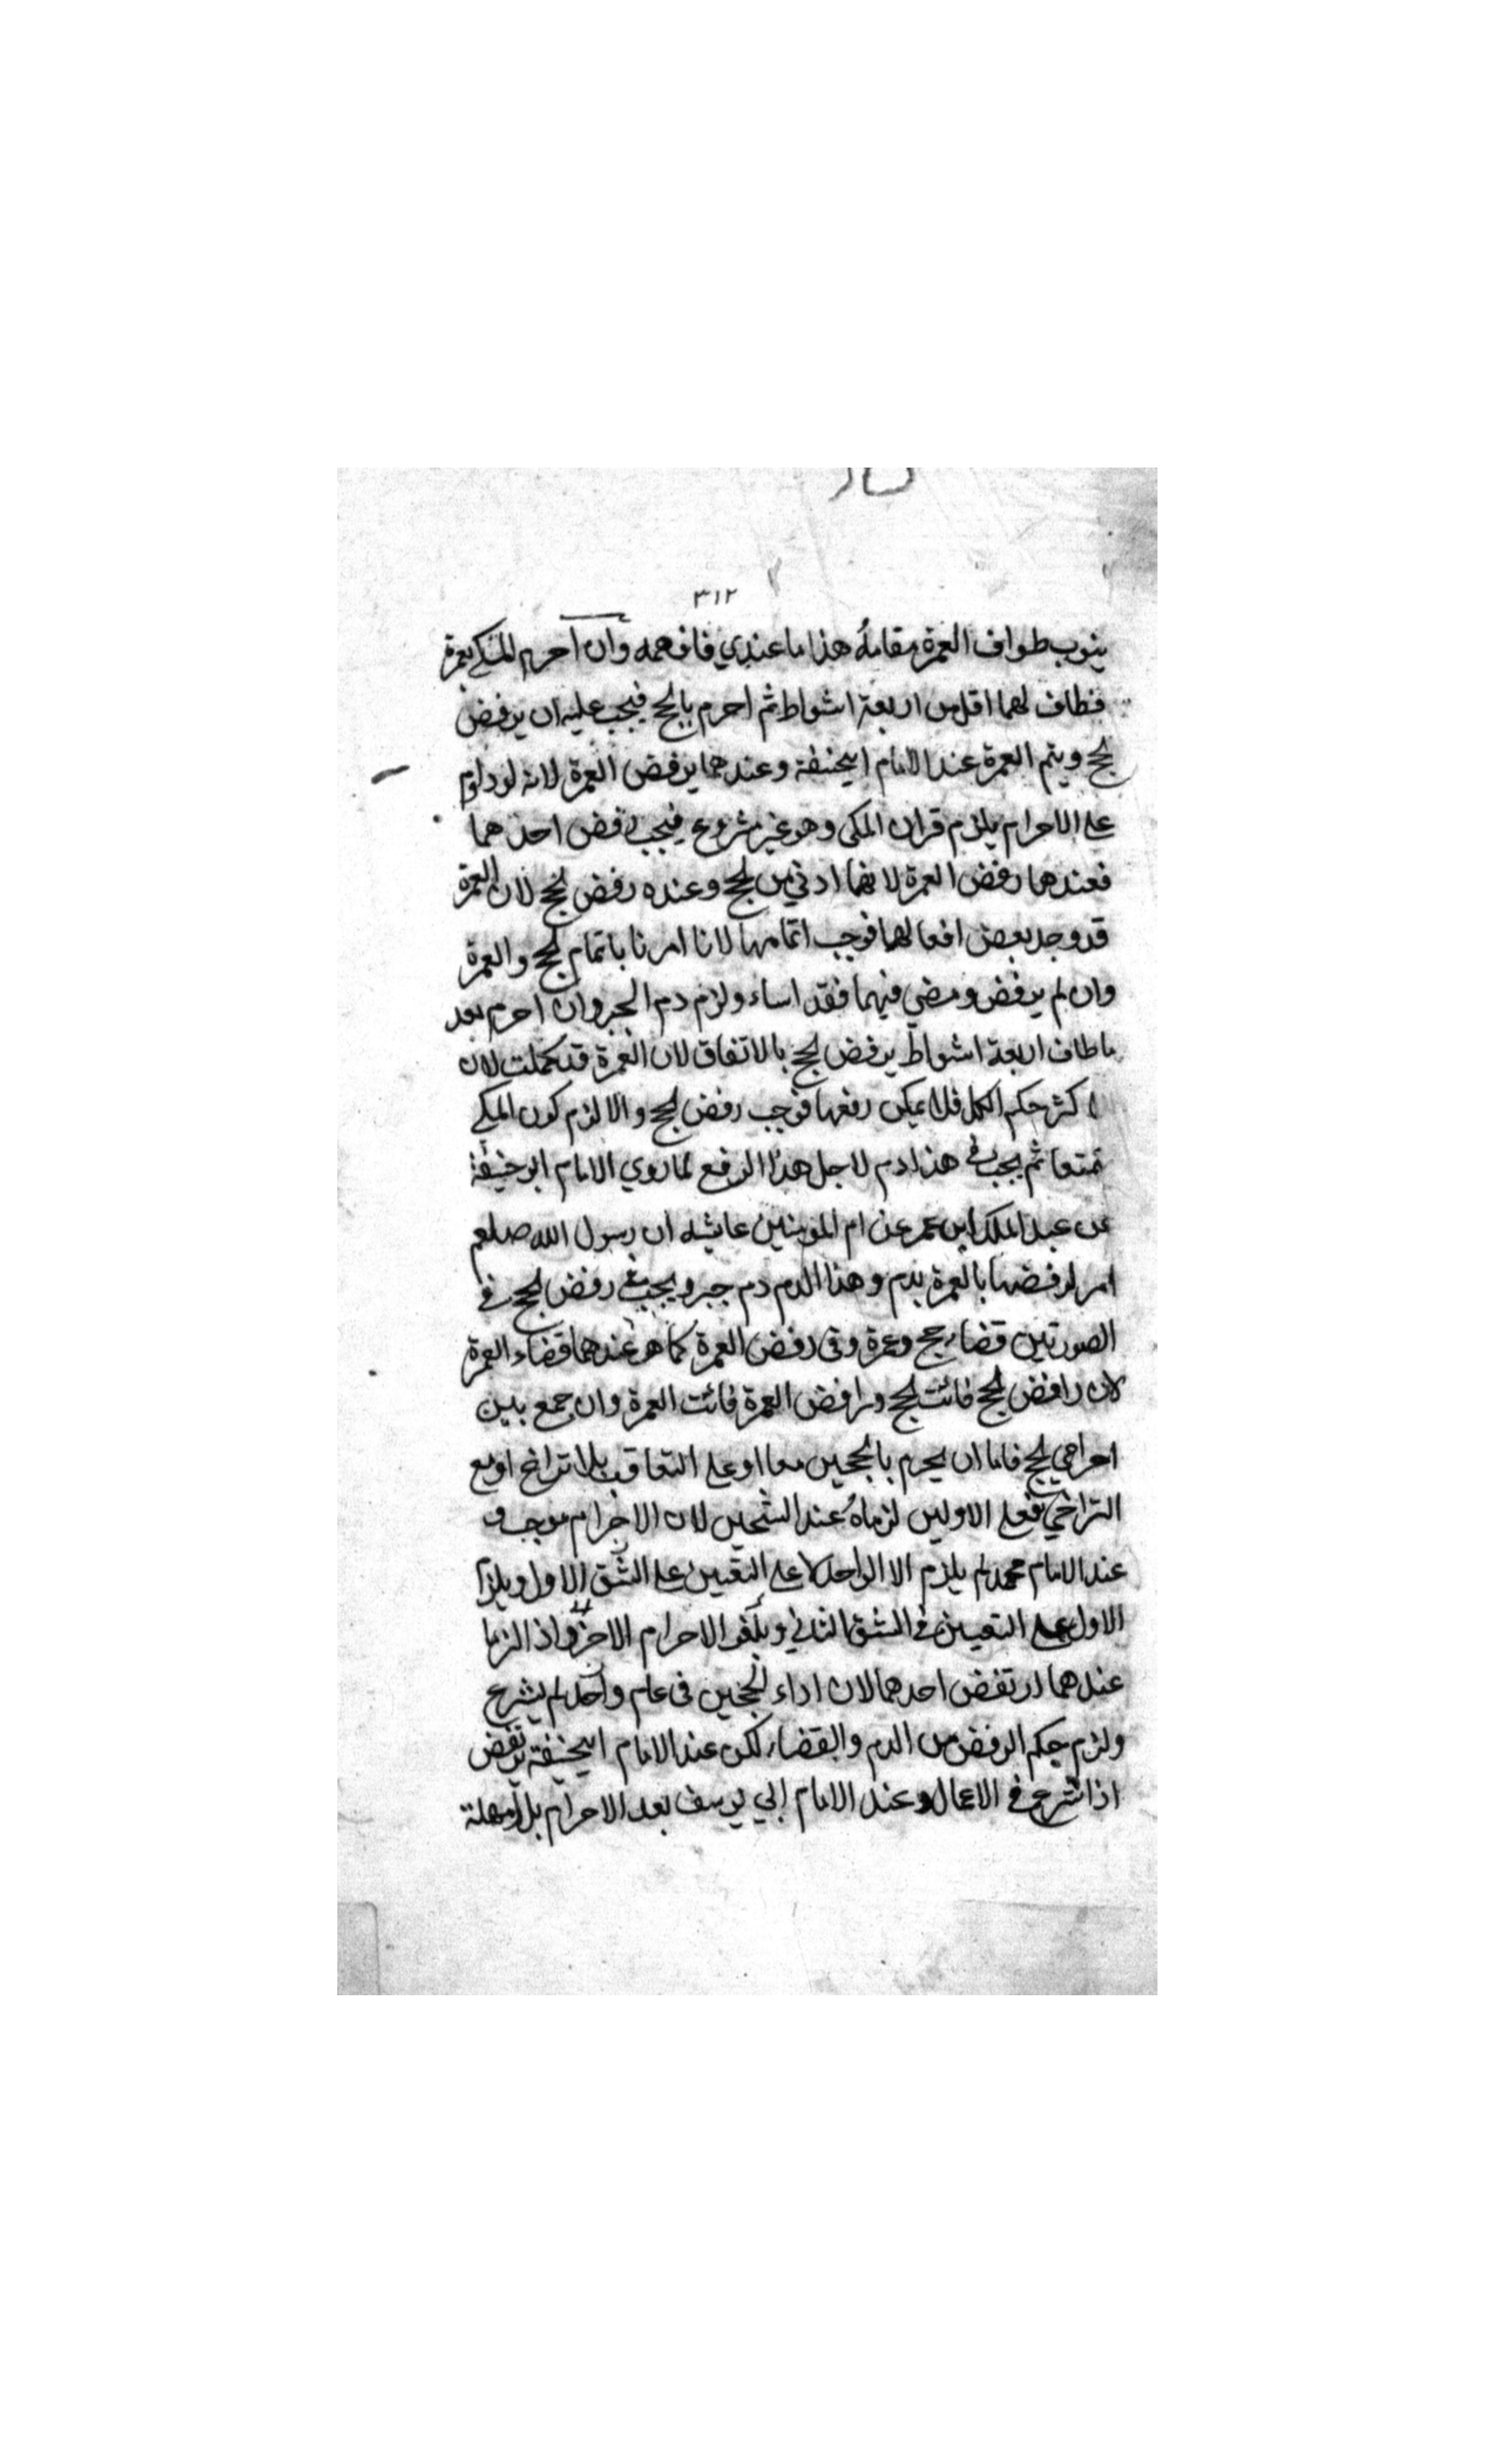 ٣١٢
ينوب طواف العمرة مقامهُ هذا ما عندي فافهمه وان احرم المكي بعمرة
فطاف لهما اقل من اربعة اشواط ثم احرم بالحج فيجب عليه ان يرفض
لحج ويتم العمرة عند الامام ابيحنيفة وعندهما يرفض العمرة لانه لو داوم
على الاحرام يلزم قران المكى وهو غير مشروع فيجب رفض احدهما
فعندهما رفض العمرة لانهما ادني من لحج وعنده رفض لحج لان العمرة
قد وجد بعض افعالهما فوجب اتمامها لانا امرنا باتمام لحج والعمرة
وان لم يرفض ومضي فيهما فقد اساء ولزم دم الجبر وان احرم بعد
ما طاف اربعة اشواط يرفض لحج بالاتفاق لان العمرة قد كملت لان
لاكثر حكم الكل فلا يمكن رفعها فوجب رفض لحج والا لزم كون المكي
متمتعا ثم يجب فى هذا دم لاجل هذا الرفع لما روي الامام ابو حنيفة
عن عبد الملك ابن عمر عن ام المومنين عايشه ان رسول الله صلعم
امر لرفضها بالعمرة بدم وهذا الدم دم جبر ويجب فى رفض لحج فى
الصورتين قضاء حج وعمرة وفى رفض العمرة كما هو عندهما قضاء العمرة
لان رافض لحج فائت لحج ورافض العمرة فائت العمرة وان جمع بين
احرامي لحج فاما ان يحرم بالحجين معا او على التعاقب بلا تراخ او مع
التراخي فعلى الاولين لزماهُ عند الشيخين لان الاحرام موجب و
عند الامام محمد لم يلزم الا الواحد لا على التعيين على الشق الاول ويلزم
الاول على التعيين فى الشق الثاني ويلغو الاحرام الاخر واذا لزما
عندهما ارتفض احدهما لان اداء لحجين فى عام واحد لم يشرع
ولزم حكم الرفض من الدم والقضاء لكن عند الامام ابيحنيفة يرتفض
اذا شرع فى الاعمال وعند الامام ابي يوسف بعد الاحرام بلا مهلة